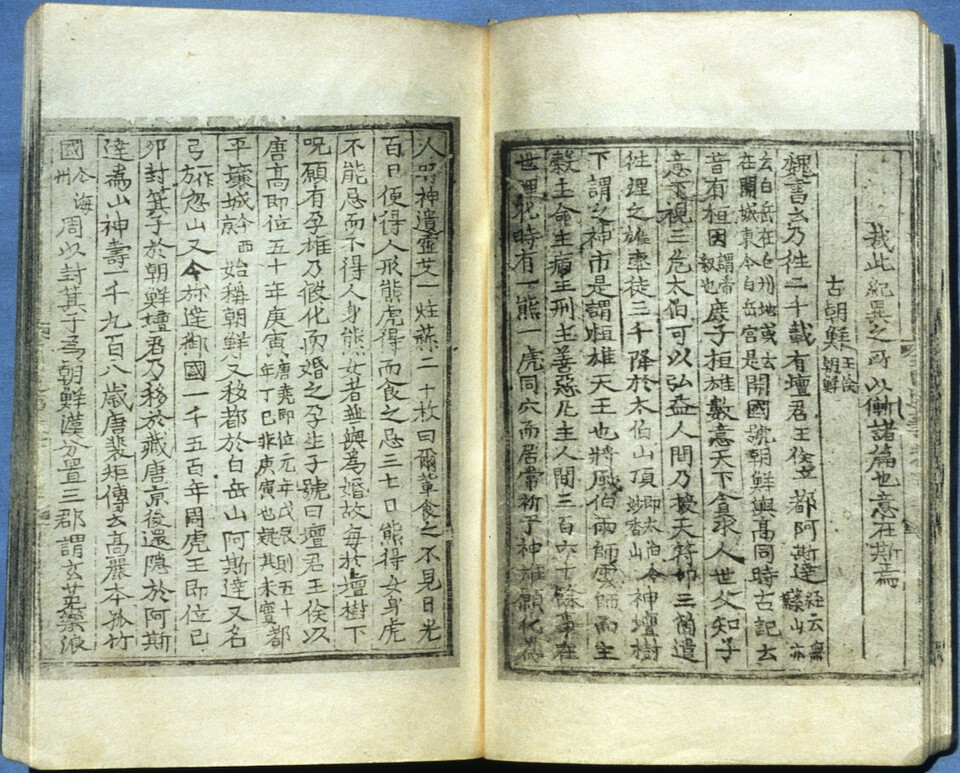 哉此紀異之所以慚諸篇也意在斯焉
古朝鮮王儉朝鮮
魏書云乃往二千載有壇君王儉立都阿斯達經云無葉山亦
云白岳在白州地或云在開城東今白岳宮是開國號朝鮮與高同時古記云
昔有桓因謂帝釋也庶子桓雄數意天下貪求人世父知子
意下視三危太伯可以弘益人間乃授天符印三箇遣
往理之雄率徒三千降於太伯山頂即太伯今妙香山神壇樹
下謂之神市是謂桓雄天王也將風伯雨師雲師而主
穀主命主病主刑主善惡凡主人間三百六十餘事在
世理化時有一熊一虎同穴而居常祈于神雄願化爲
人時神遺靈艾一炷蒜二十枚曰爾輩食之不見日光
百日便得人形熊虎得而食之忌三七日熊得女身虎
不能忌而不得人身熊女者無與爲婚故每於壇樹下
呪願有孕雄乃假化而婚之孕生子號曰壇君王儉以
唐高即位五十年庚寅唐堯即位元年戊辰則五十年丁巳非庚寅也疑其未實都
平壤城今西京始稱朝鮮又移都於白岳山阿斯達又名
弓一作方忽山又今旀達御國一千五百年周虎王即位己
卯封箕子於朝鮮壇君乃移於藏唐京後還隱於阿斯
達爲山神壽一千九百八歲唐裵矩傳云高麗本孤竹
國今海州周以封箕子爲朝鮮漢分置三郡謂玄菟樂浪